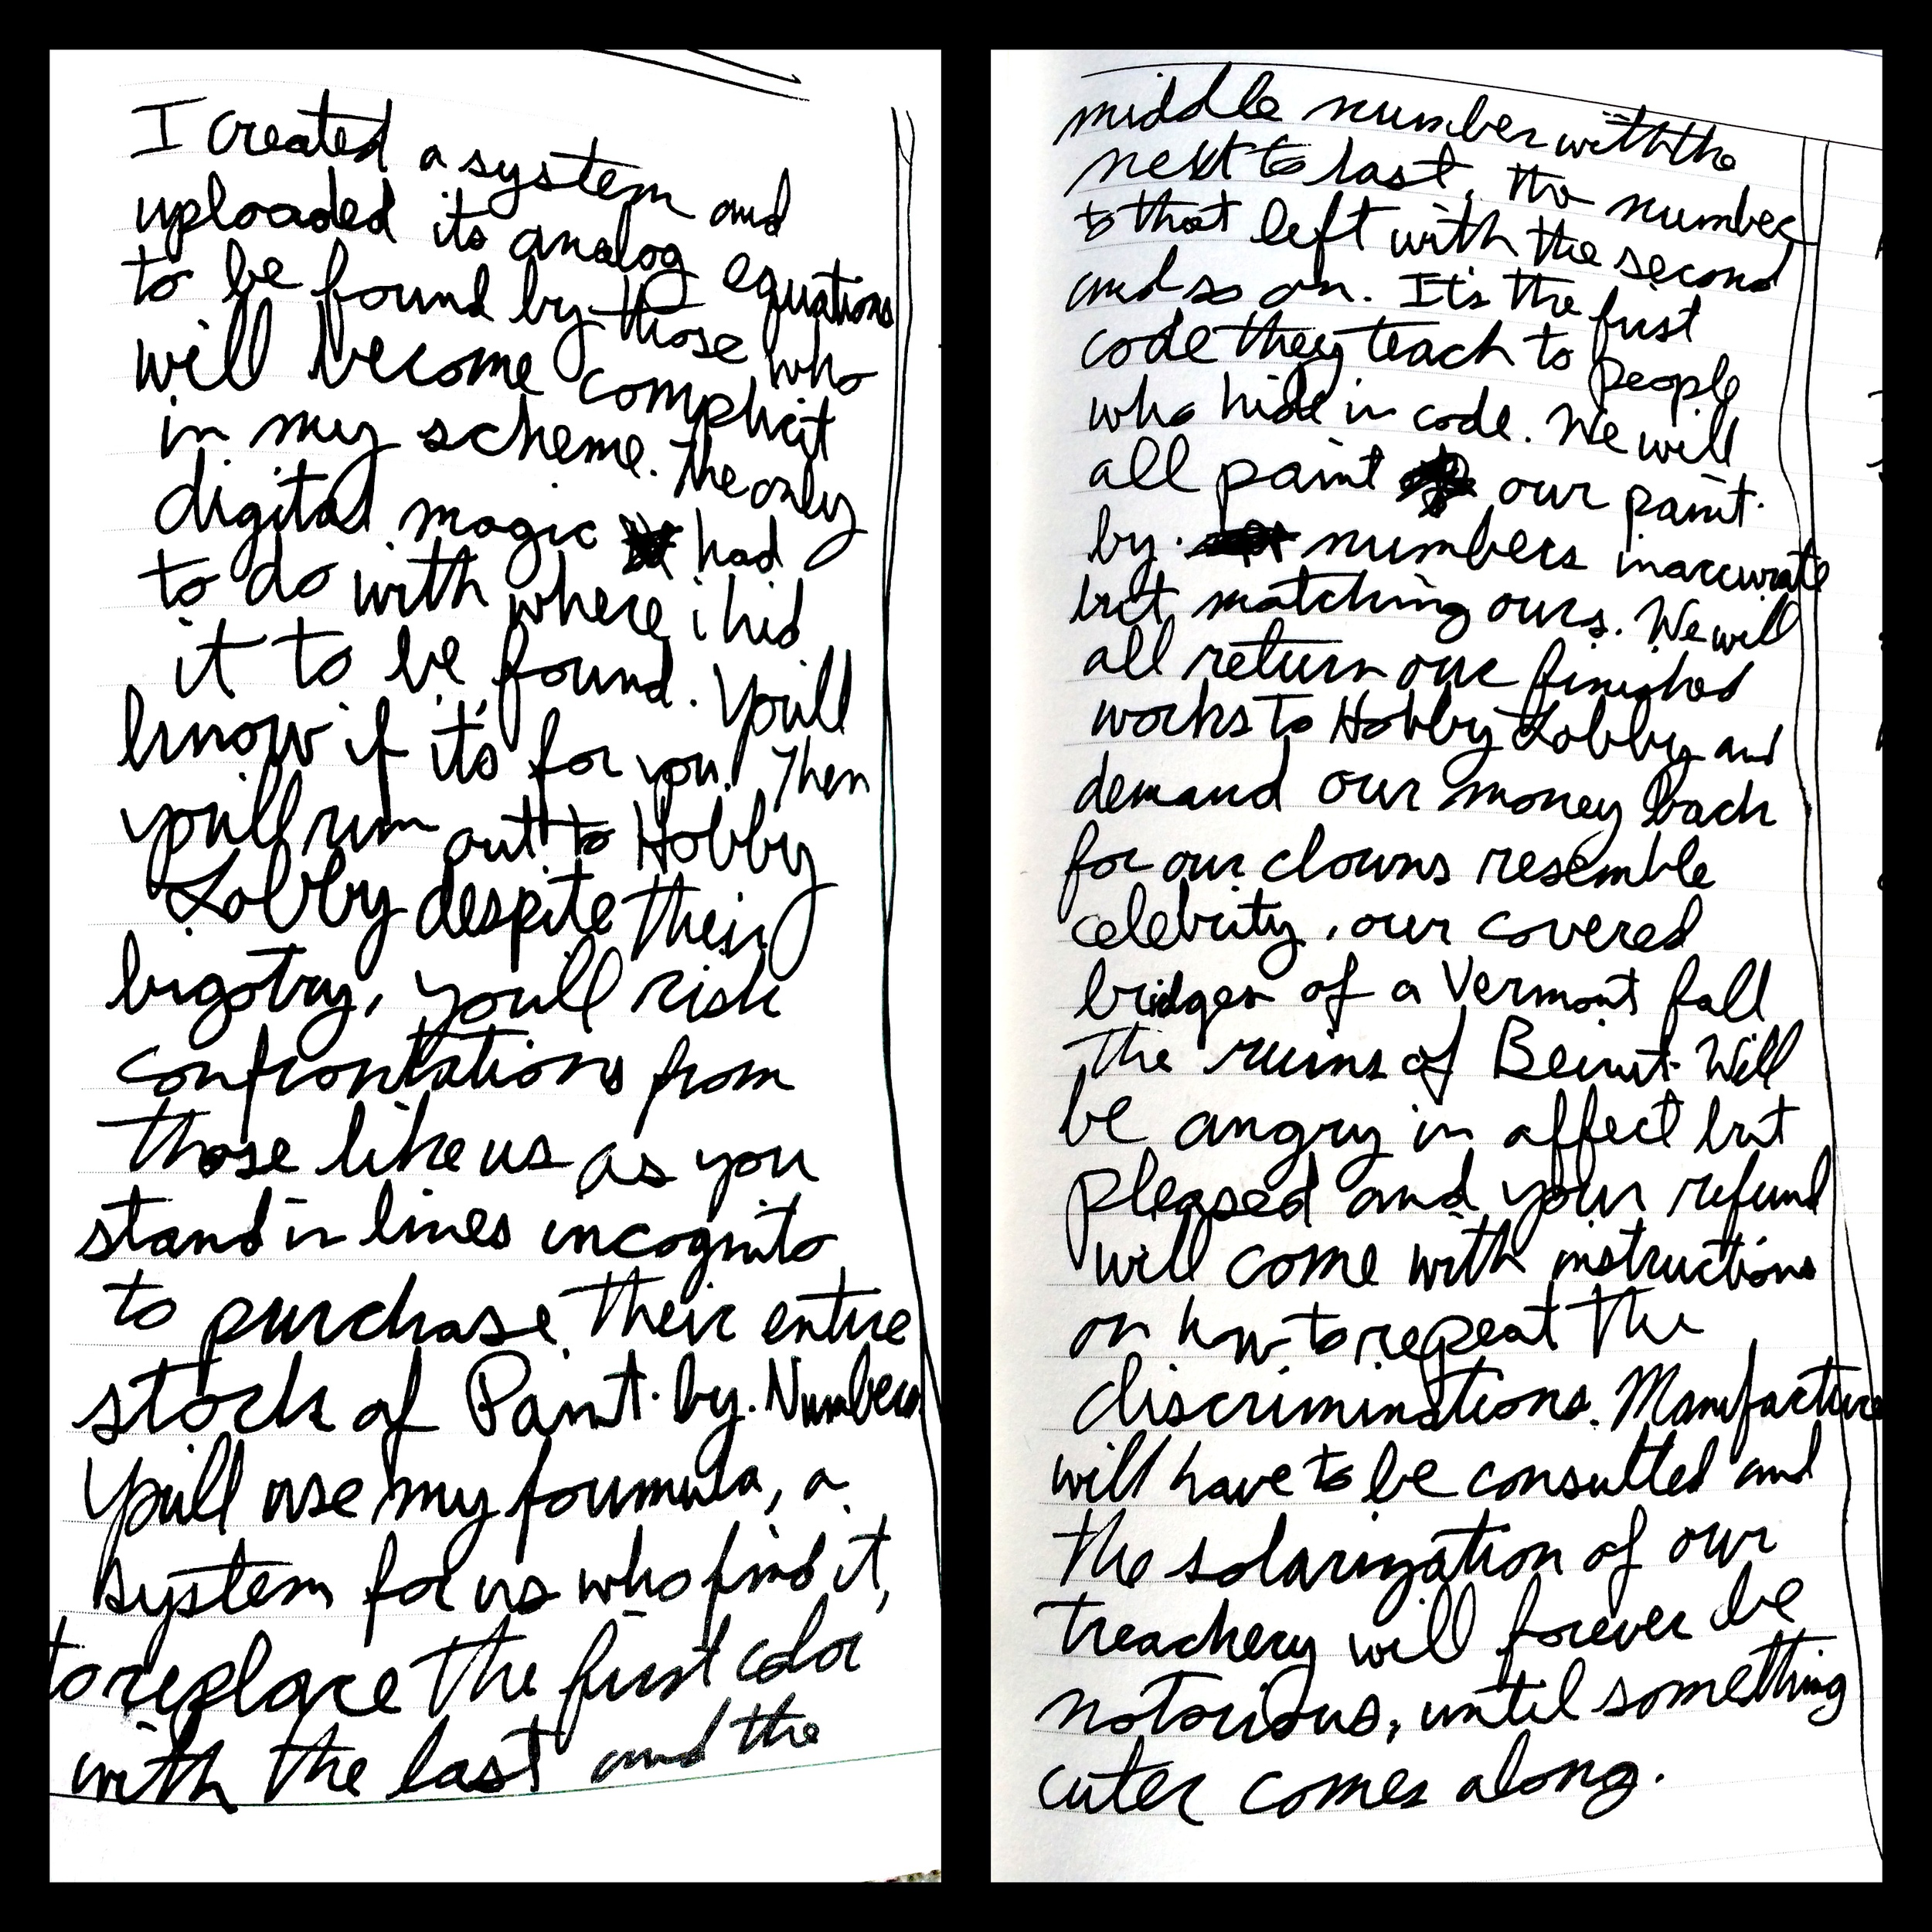 I created a system and
uploaded its analog equations
to be found by those who
will become complicit
in my scheme. The only
digital magic had
to do with where i hid
it to be found. You'll
know if it's for you. Then
you'll run out to Hobby
Lobby despite their
bigotry, you'll risk
confrontations from
those like us as you
stand in lines incognito
to purchase their entire
stock of Paint-by-Numbers.
You'll use my foumula, a
system for us who find it,
to replace the first color
with the last and the
middle number with the
next to last, the number
to that left with the second
and so on. It's the first
code they teach to people
who hide in code. We will
all paint our paint-
by-numbers inaccurate
but matching ours. We will
all return our finished
works to Hobby Lobby and
demand our money back
for our clowns resemble
celebrity, our covered
bridges of a Vermont fall
the ruins of Beirut. Will
be angry in affect but
pleased and your refund
will come with instructions
on how to repeat the
discriminations. Manufacturers
will have to be consulted and
the solarization of our
treachery will forever be
notorious, until something
cuter comes along.